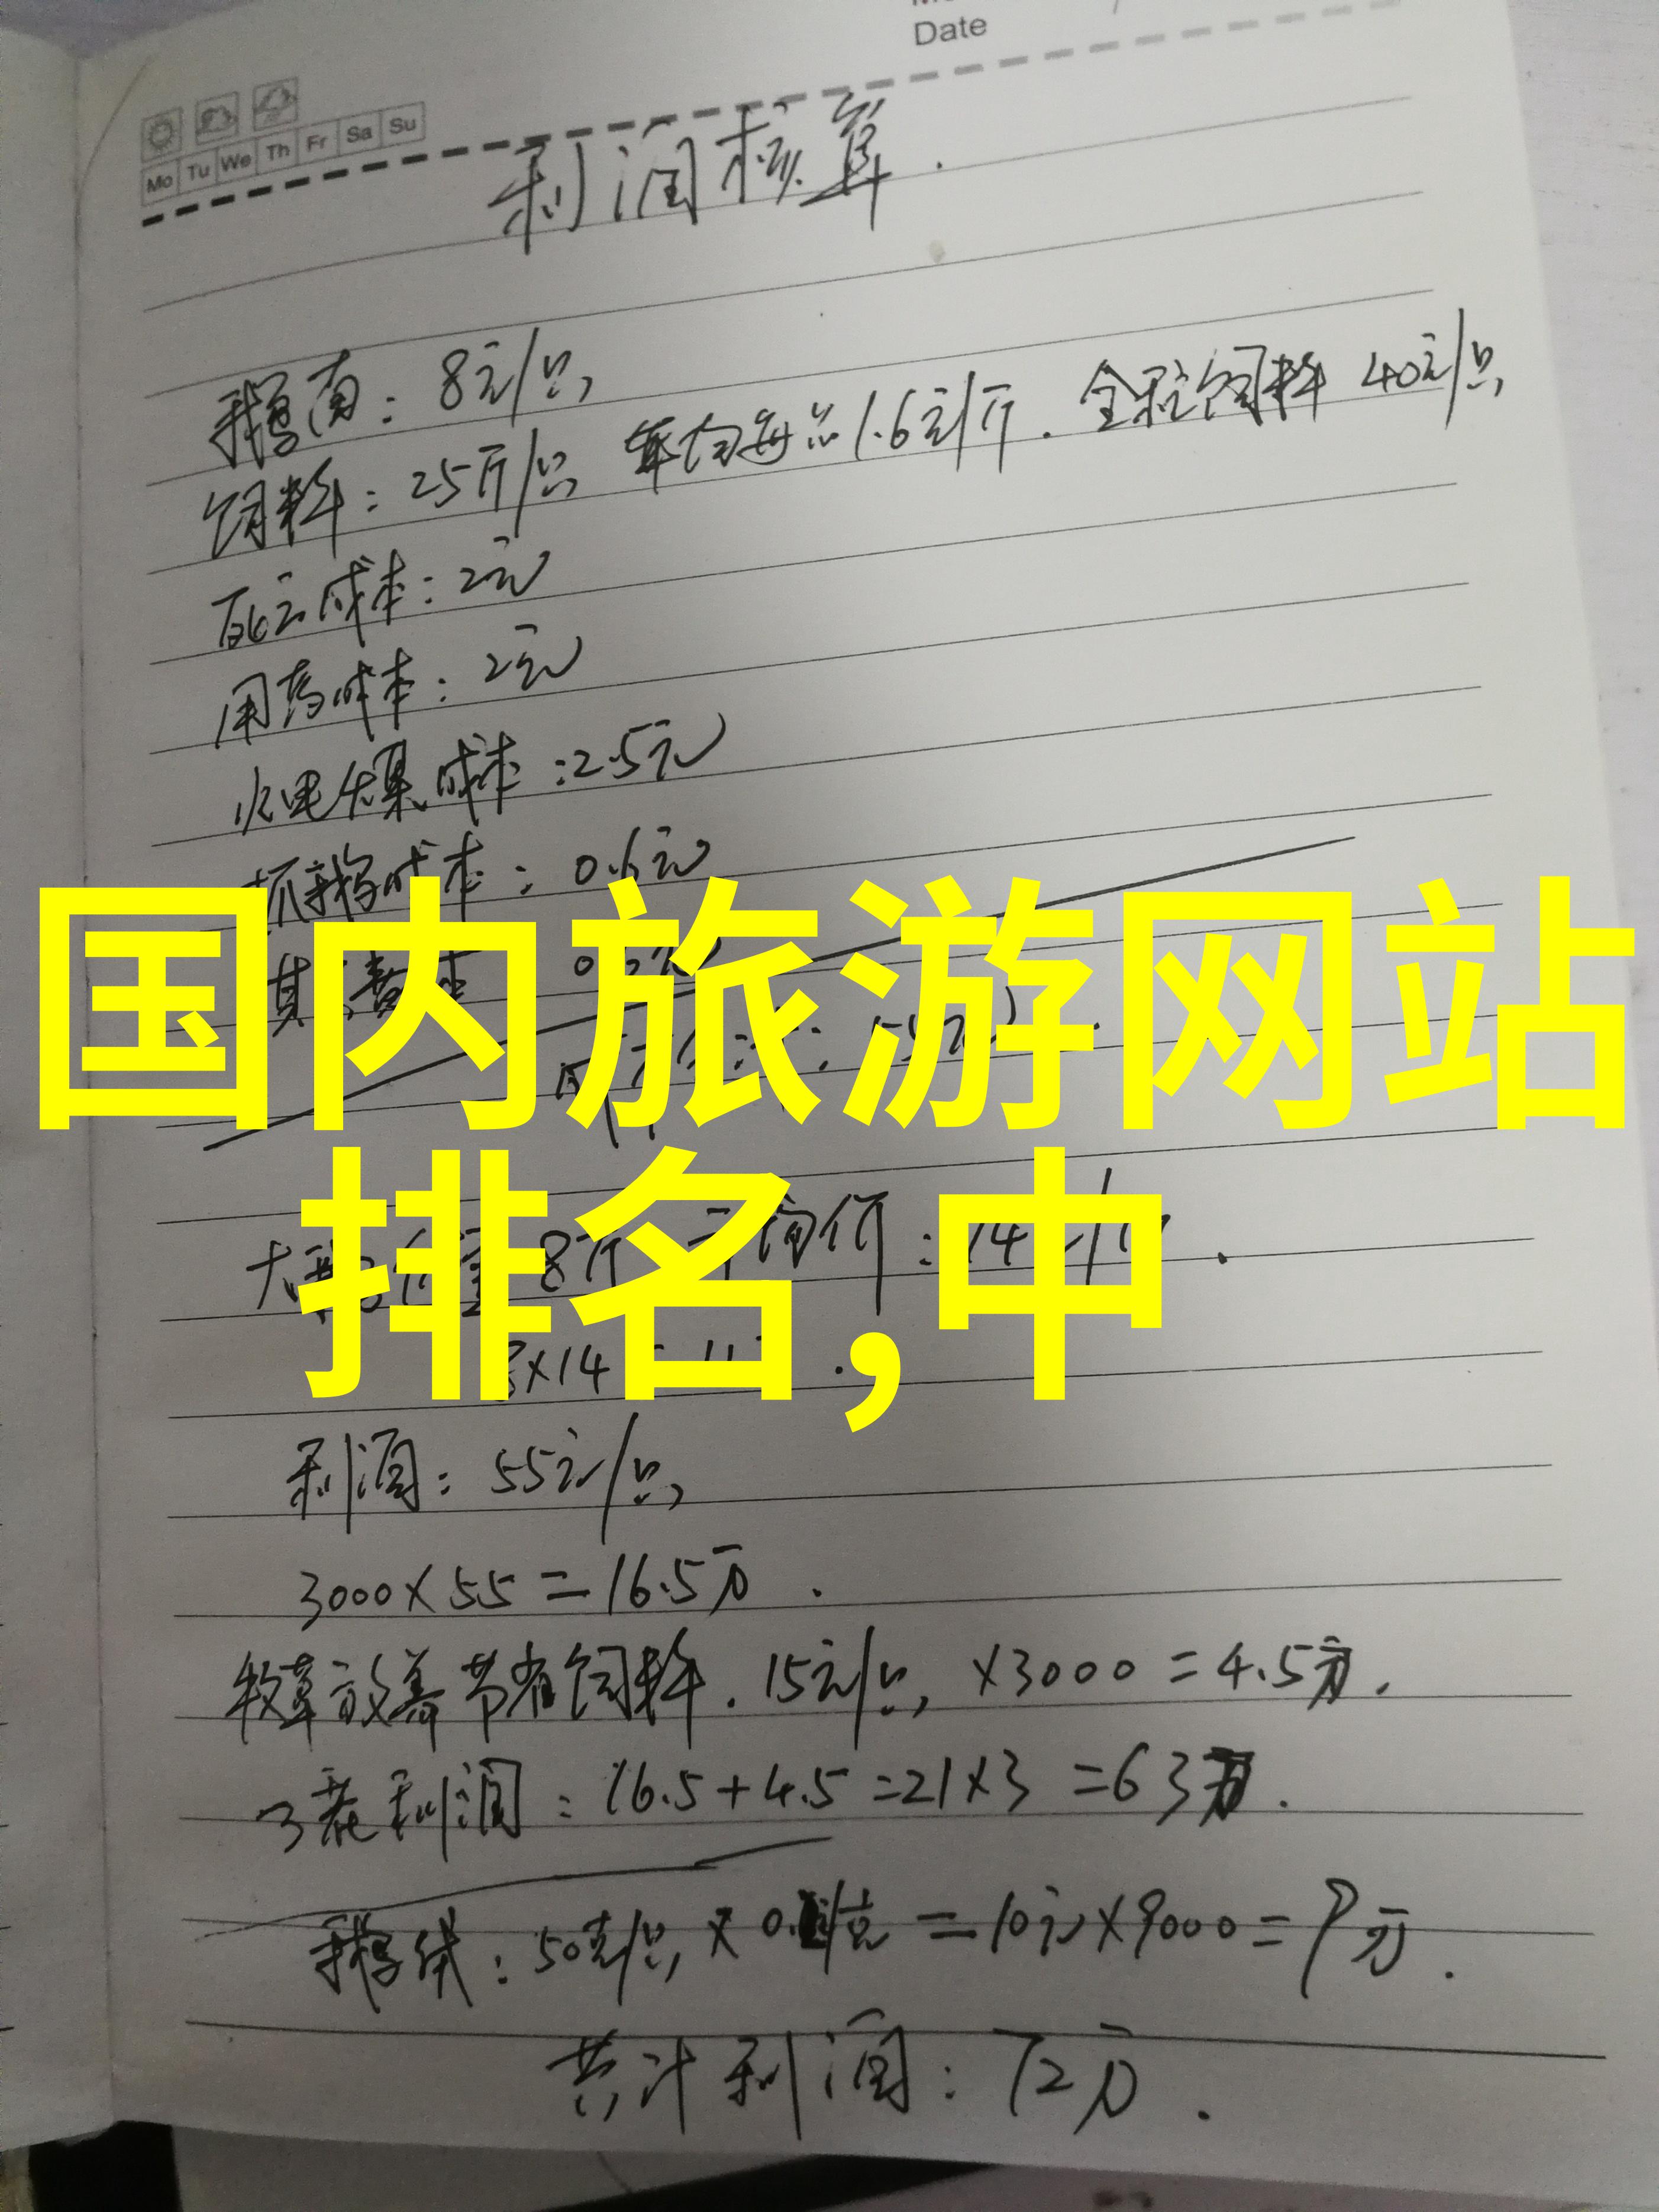 Date
Mo Tu We Th Fr Sa Su
利润核算.
鹅苗: 8元/只,
饲料: 25斤/只, 1.6元/斤. 全程饲料 40元/只,
死亡成本: 2元
用药成本: 2元
水电煤成本: 2.5元
抓鹅成本: 0.6元
国内旅游网站
排名,中
利润: 55元/只,
3000×55=16.5万.
牧草放养节省饲料. 15元/只, ×3000=4.5万.
3茬利润: 16.5+4.5=21×3=63万.
鹅绒: 50克/只, × =10元×9000=9万.
共计利润: 72万.